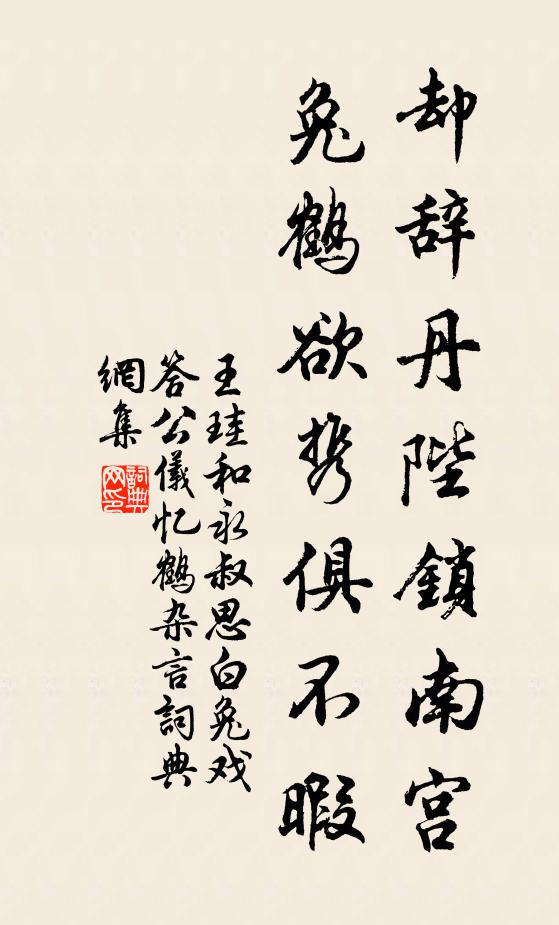 却辞丹陛鎖南宫
兔鶴欲携俱不暇
王珪和永叔思白兔戏
答公儀忆鶴杂言詞典
網集
詞典网印